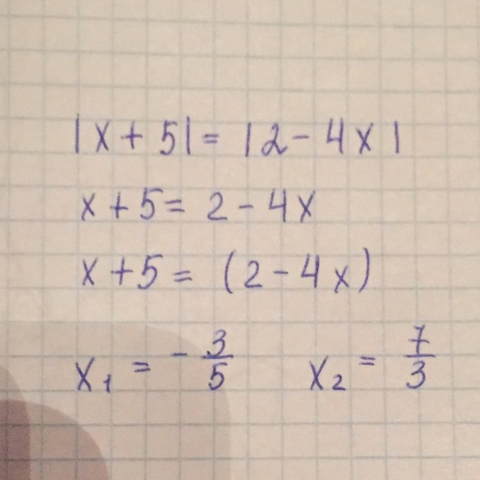 |x + 5| = |2 - 4x|
x + 5 = 2 - 4x
x + 5 = (2 - 4x)
x₁ = - 3/5 x₂ = 7/3